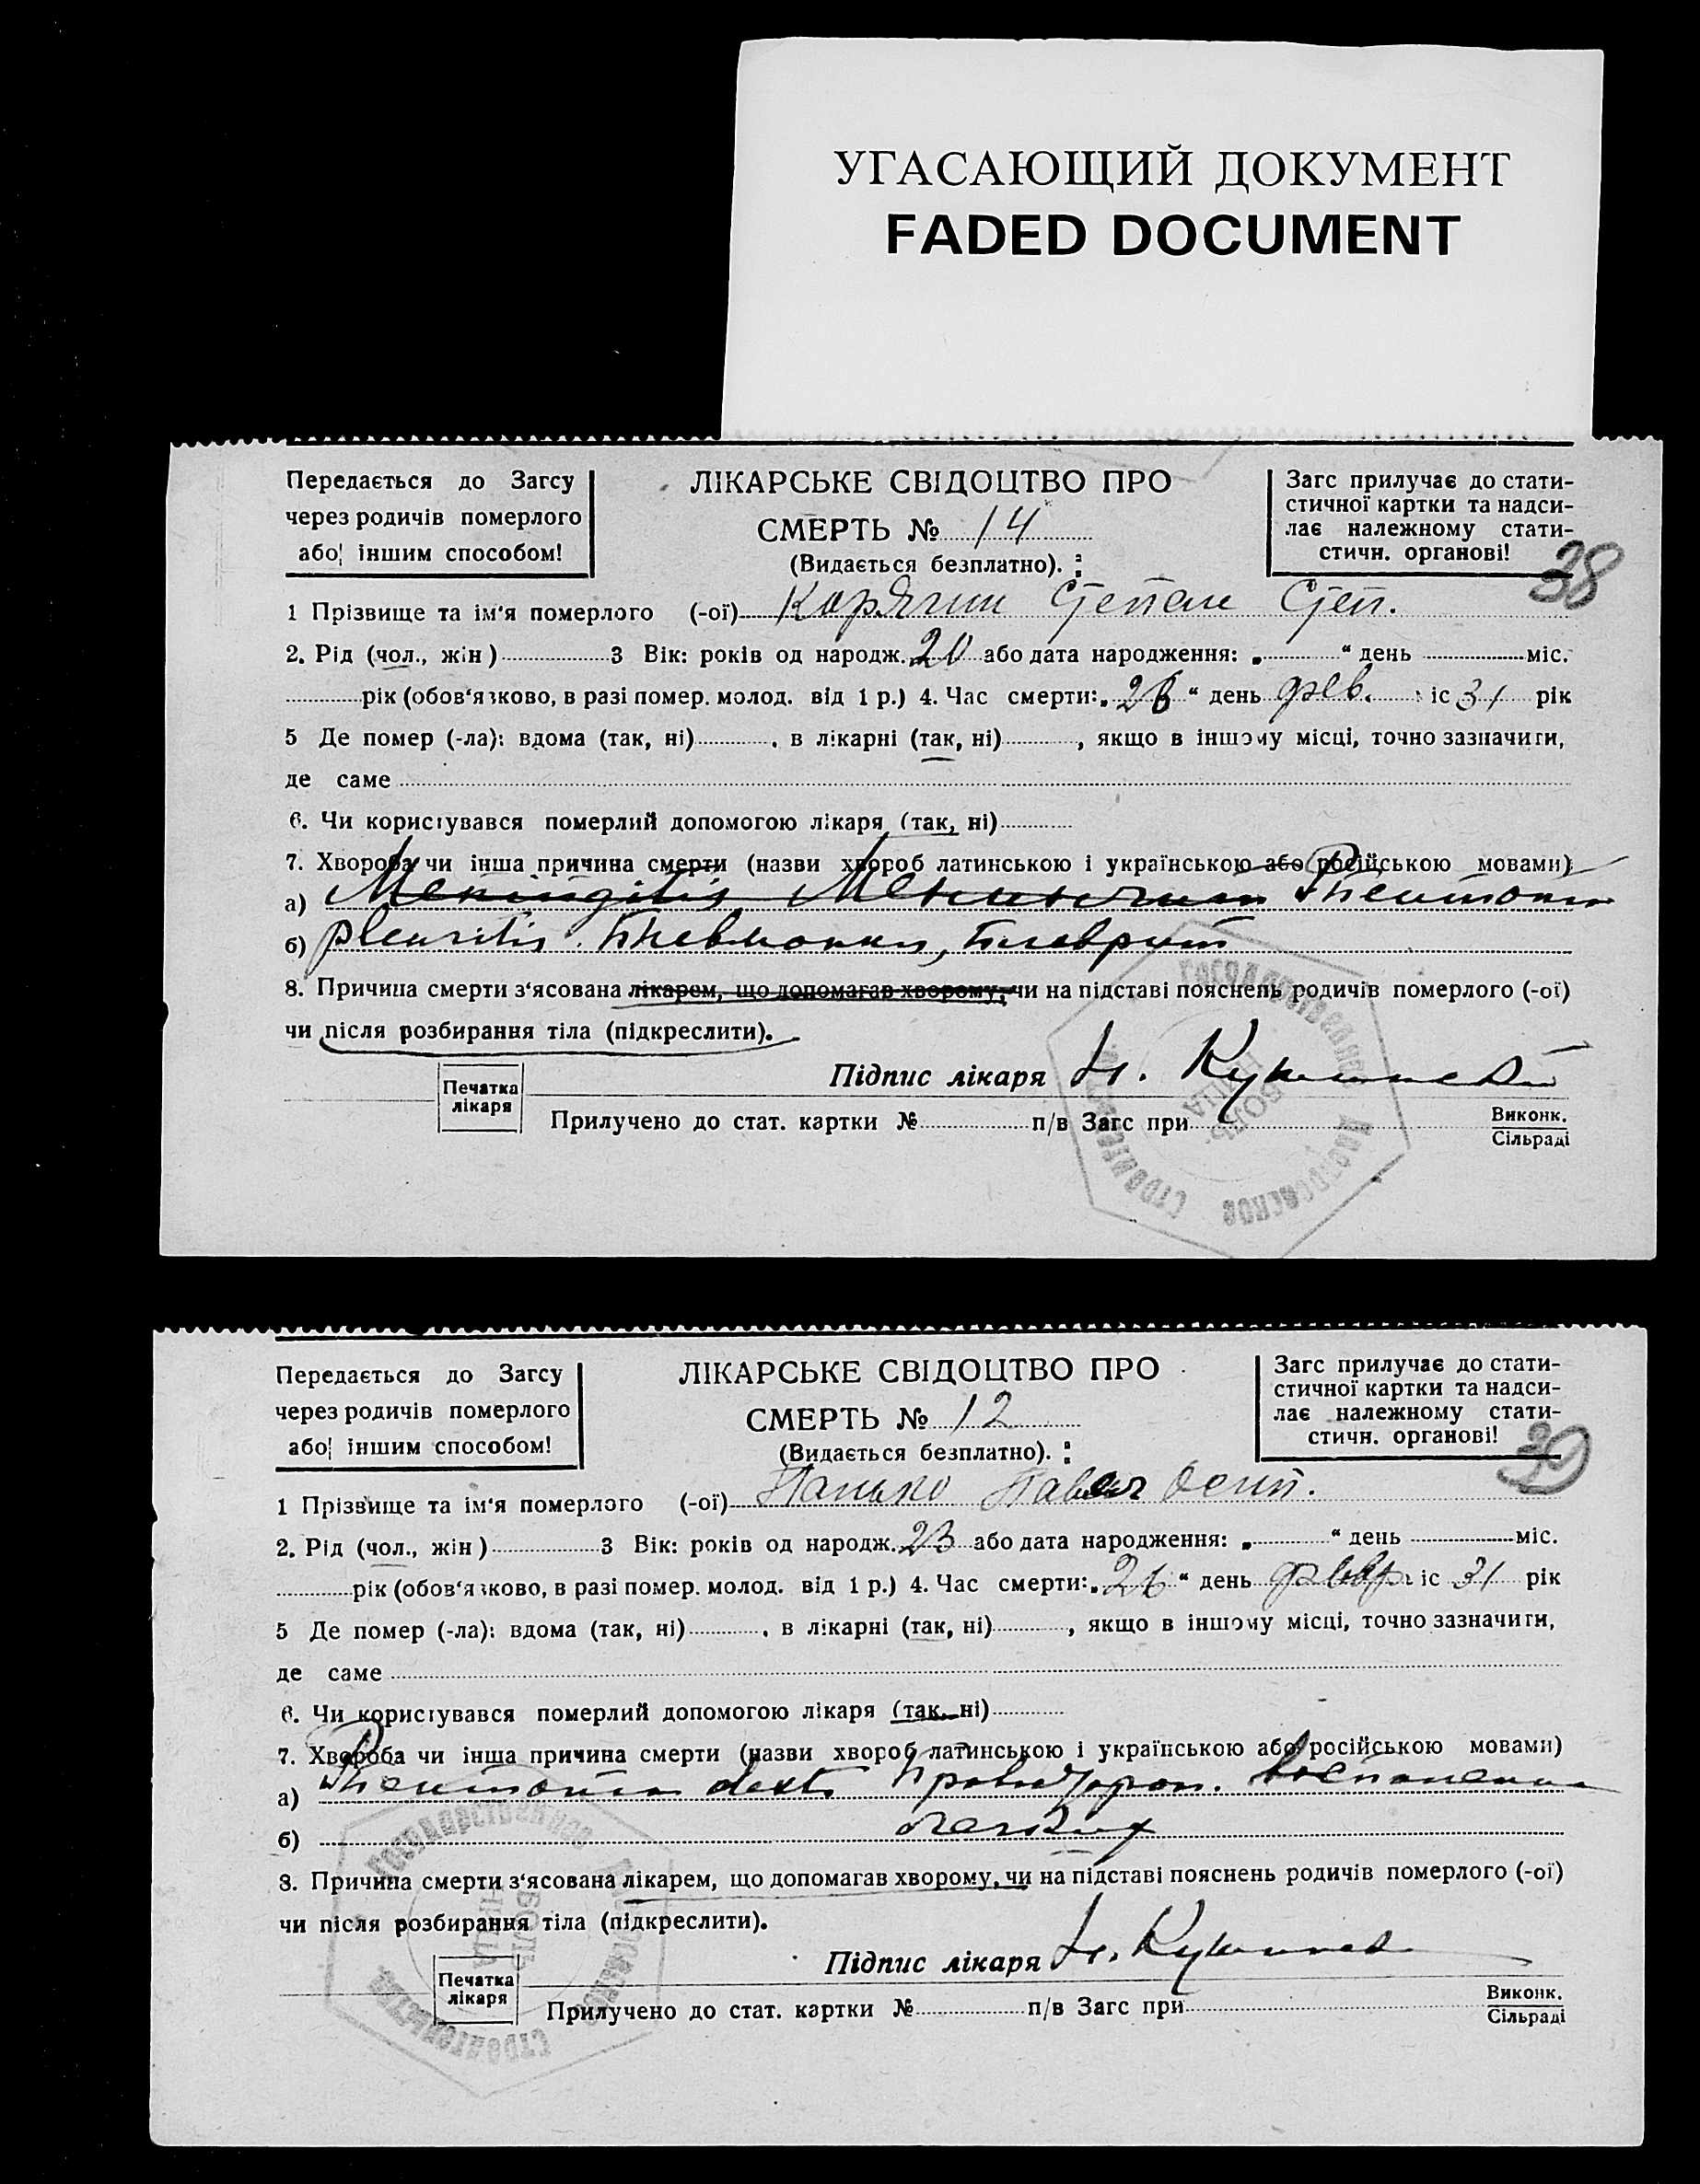 УГАСАЮЩИЙ ДОКУМЕНТ
FADED DOCUMENT
Передається до Загсу
через родичів померлого
або іншим способом!
ЛІКАРСЬКЕ СВІДОЦТВО ПРО
СМЕРТЬ № 14
(Видається безплатно).
Загс прилучає до стати-
стичної картки та надси-
лає належному стати-
стичн. органові!
38
1 Прізвище та ім'я померлого (-ої) Карягин Степан Степ.
2. Рід (чол., жін) 3 Вік: років од народж. 20 або дата народження: „ “ день міс.
рік (обов'язково, в разі помер. молод. від 1 р.) 4. Час смерти: „26“ день фев. іс 31 рік
5 Де помер (-ла): вдома (так, ні) , в лікарні (так, ні) , якщо в іншому місці, точно зазначити,
де саме
6. Чи користувався померлий допомогою лікаря (так, ні)
7. Хвороба чи інша причина смерти (назви хвороб латинською і українською або російською мовами)
а) Meningitis Pneumonia
б) pleuritis. Пневмония, Плеврит
8. Причина смерти з'ясована лікарем, що допомагав хворому, чи на підставі пояснень родичів померлого (-ої)
чи після розбирання тіла (підкреслити).
Підпис лікаря
Печатка
лікаря
Прилучено до стат. картки № п/в Загс при Виконк.
Сільраді
Государственное Днепровское Строительство
БОЛЬ
НИЦА
Передається до Загсу
через родичів померлого
або іншим способом!
ЛІКАРСЬКЕ СВІДОЦТВО ПРО
СМЕРТЬ № 12
(Видається безплатно).
Загс прилучає до стати-
стичної картки та надси-
лає належному стати-
стичн. органові!
39
1 Прізвище та ім'я померлого (-ої) Панько Павел Осип.
2. Рід (чол., жін) 3 Вік: років од народж. 23 або дата народження: „ “ день міс.
рік (обов'язково, в разі помер. молод. від 1 р.) 4. Час смерти: „26“ день февр. іс 31 рік
5 Де помер (-ла): вдома (так, ні) , в лікарні (так, ні) , якщо в іншому місці, точно зазначити,
де саме
6. Чи користувався померлий допомогою лікаря (так, ні)
7. Хвороба чи інша причина смерти (назви хвороб латинською і українською або російською мовами)
а) Pneumonia dextr. Правостор. воспаление
б) легких
8. Причина смерти з'ясована лікарем, що допомагав хворому, чи на підставі пояснень родичів померлого (-ої)
чи після розбирання тіла (підкреслити).
Підпис лікаря
Печатка
лікаря
Прилучено до стат. картки № п/в Загс при Виконк.
Сільраді
Государственное Днепровское Строительство
БОЛЬ
НИЦА